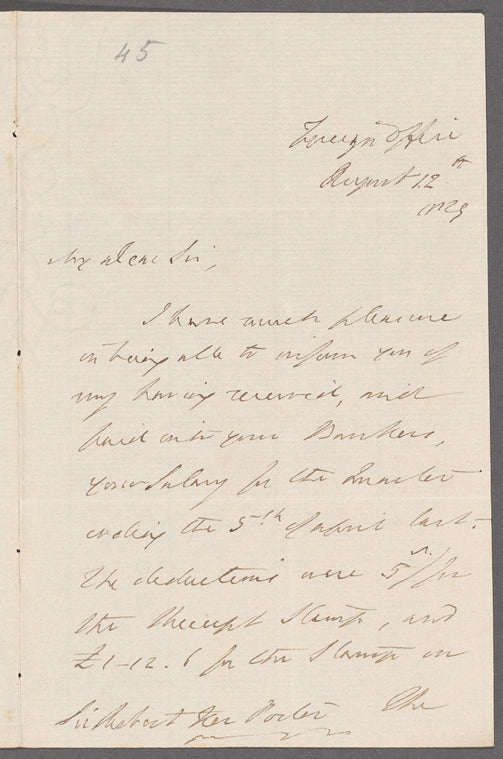 45
Foreign Office
August 12th
1829
My dear Sir,
I have much pleasure
in being able to inform you of
my having received, and
paid into your Bankers,
your Salary for the Quarter
ending the 5th of April last.
The deductions were 5s/ for
the Receipt Stamp, and
£1-12.6 for the Stamp on
Sir Robert Ker Porter The